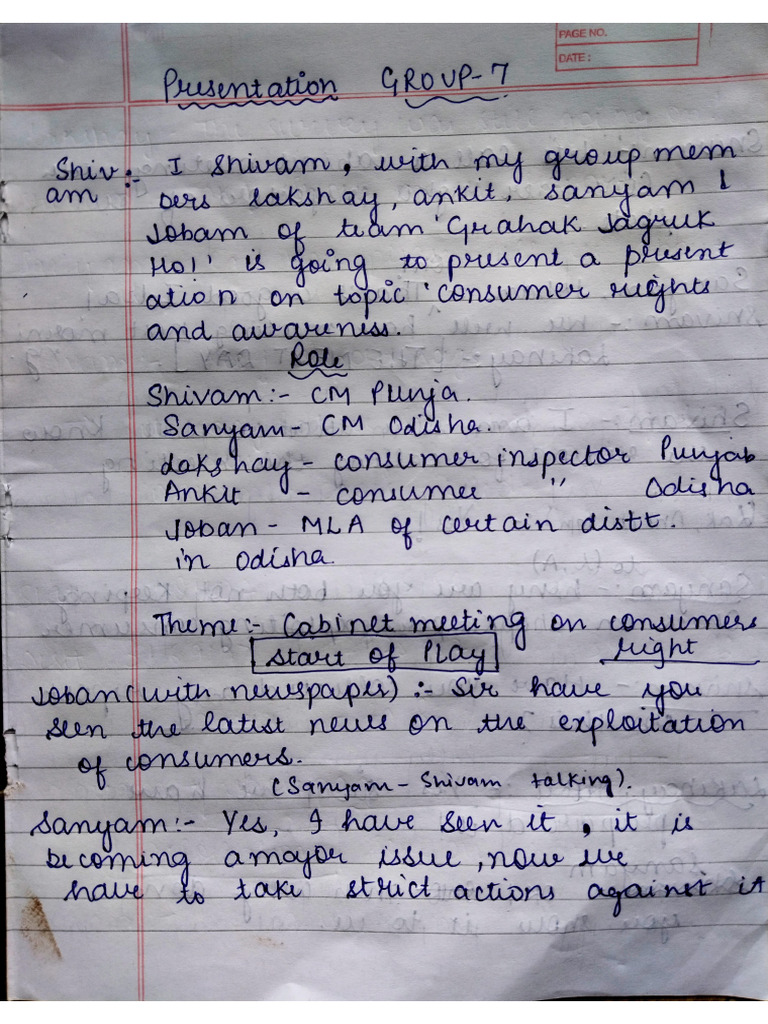 PAGE NO.
DATE:
Presentation GROUP-7
Shiv :- I Shivam, with my group mem
am bers Lakshay, ankit, sanyam &
Joban of team 'Grahak Jagruk
Ho!' is going to present a present
ation on topic 'consumer rights
and awareness.
Role
Shivam:- CM Punja.
Sanyam- CM Odisha.
Lakshay - consumer inspector Punjab
Ankit - consumer " Odisha
Joban - MLA of certain distt.
in Odisha.
Theme:- Cabinet meeting on consumers
Start of Play right
Joban (with newspaper) :- Sir have you
seen the latest news on the exploitation
of consumers.
(Sanyam - Shivam talking).
Sanyam:- Yes, I have seen it, it is
becoming a mayor issue, now we
have to take strict actions against it